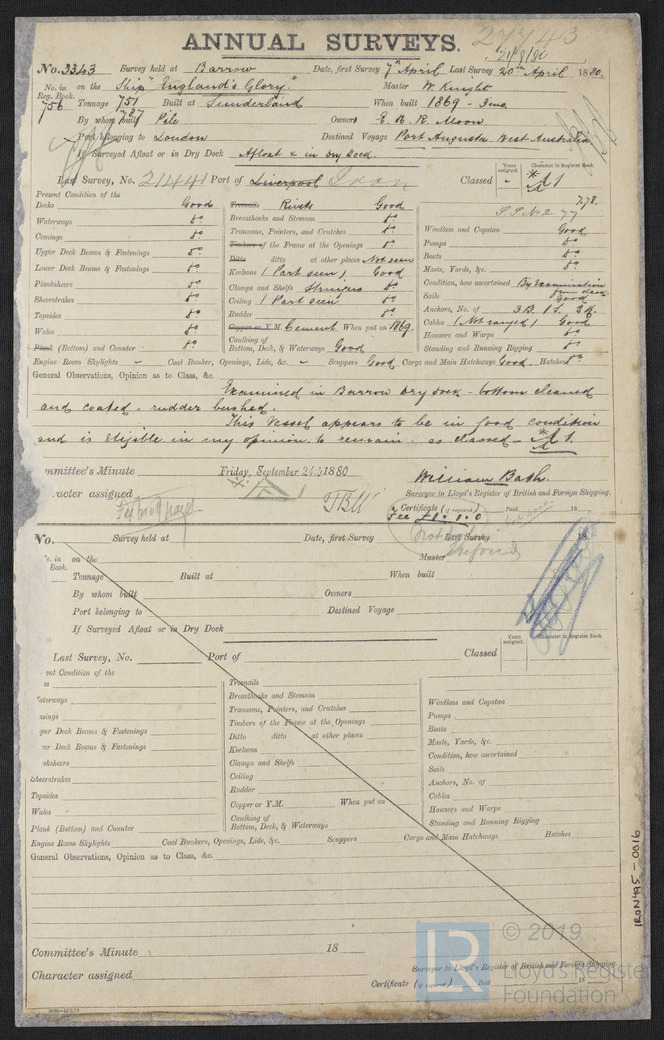 27743
ANNUAL SURVEYS.
21/8/80
No. 3343 Survey held at Barrow Date, first Survey 7th April Last Survey 20th April 1880.
No. in Reg. Book. on the Ship "England's Glory." Master W. Knight
756 Tonnage 751 Built at Sunderland When built 1869 - 3 mo.
By whom built Pile Owners E. B. R. Moon
Port belonging to London Destined Voyage Port Augusta West Australia
If Surveyed Afloat or in Dry Dock Afloat & in Dry Dock.
Years assigned. Character in Register Book.
Last Survey, No. 21441 Port of Liverpool Iron Classed - A 1
7.78.
Present Condition of the
Decks Good
Waterways do
Comings do
Upper Deck Beams & Fastenings do
Lower Deck Beams & Fastenings do
Planksheers do
Sheerstrakes do
Topsides do
Wales do
Plank (Bottom) and Counter do
Treenails Rivets Good
Breasthooks and Stemson do
Transoms, Pointers, and Crutches do
Timbers of the Frame at the Openings do
Ditto ditto at other places Not seen
Keelsons (Part seen) Good
Clamps and Shelfs Stringers do
Ceiling (Part seen) do
Rudder do
Copper or Y.M. Cement When put on 1869.
Caulking of
Bottom, Deck, & Waterways Good
S.S. No 2 77
Windlass and Capstan Good
Pumps do
Boats do
Masts, Yards, &c. do
Condition, how ascertained By Examination from deck
Sails Good
Anchors, No. of 3 B. 1 S. 2 K.
Cables (Not ranged) Good
Hawsers and Warps do
Standing and Running Rigging do
Engine Room Skylights - Coal Bunker, Openings, Lids, &c. - Scuppers Good Cargo and Main Hatchways Good. Hatches do
General Observations, Opinion as to Class, &c.
Examined in Barrow Dry Dock - bottom cleaned
and coated - rudder bushed.
This Vessel appears to be in good condition
and is eligible in my opinion to remain as classed - A 1.
Committee's Minute Friday, September 24th 1880
William Bath.
Character assigned
Surveyor to Lloyd's Register of British and Foreign Shipping.
Certificate (if required) Paid 18
Fee £1 . 0 . 0
No. Survey held at Date, first Survey Last Survey 18
No. in Reg. Book. on the Master
Tonnage Built at When built
By whom built Owners
Port belonging to Destined Voyage
If Surveyed Afloat or in Dry Dock
Years assigned. Character in Register Book.
Last Survey, No. Port of Classed
Present Condition of the
Decks
Waterways
Comings
Upper Deck Beams & Fastenings
Lower Deck Beams & Fastenings
Planksheers
Sheerstrakes
Topsides
Wales
Plank (Bottom) and Counter
Treenails
Breasthooks and Stemson
Transoms, Pointers, and Crutches
Timbers of the Frame at the Openings
Ditto ditto at other places
Keelsons
Clamps and Shelfs
Ceiling
Rudder
Copper or Y.M. When put on
Caulking of
Bottom, Deck, & Waterways
Windlass and Capstan
Pumps
Boats
Masts, Yards, &c.
Condition, how ascertained
Sails
Anchors, No. of
Cables
Hawsers and Warps
Standing and Running Rigging
Engine Room Skylights Coal Bunkers, Openings, Lids, &c. Scuppers Cargo and Main Hatchways Hatches
General Observations, Opinion as to Class, &c.
Committee's Minute 18
Character assigned
Surveyor to Lloyd's Register of British and Foreign Shipping.
Certificate (if required) Paid 18
IRON495-0016
LR
© 2019
Lloyd's Register
Foundation